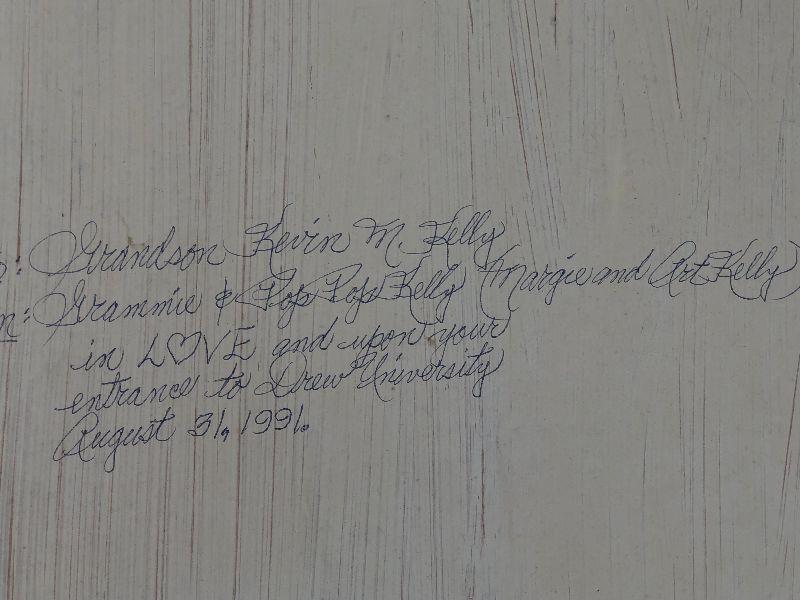 o: Grandson Kevin M. Kelly
m: Grammie & Pop Pop Kelly (Margie and Art Kelly)
in L♡VE and upon your
entrance to Drew University
August 31, 1991.